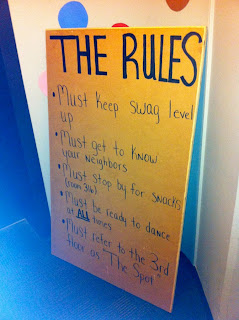 THE RULES
• Must keep swag level
up
• Must get to know
your neighbors
• Must stop by for snacks
(room 316)
• Must be ready to dance
at ALL times
• Must refer to the 3rd
floor as "The Spot"